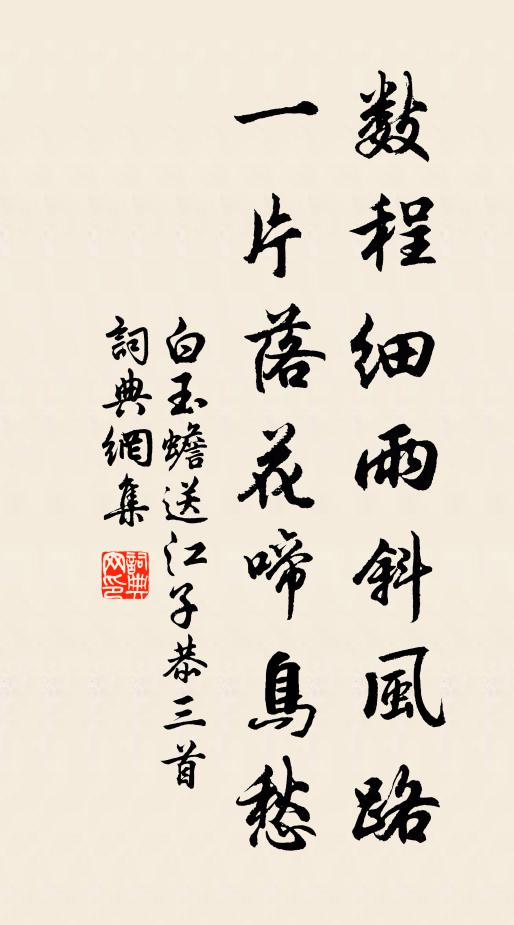 数程細雨斜風路
一片落花啼鳥愁
白玉蟾送江子恭三首
詞典網集
詞典网印